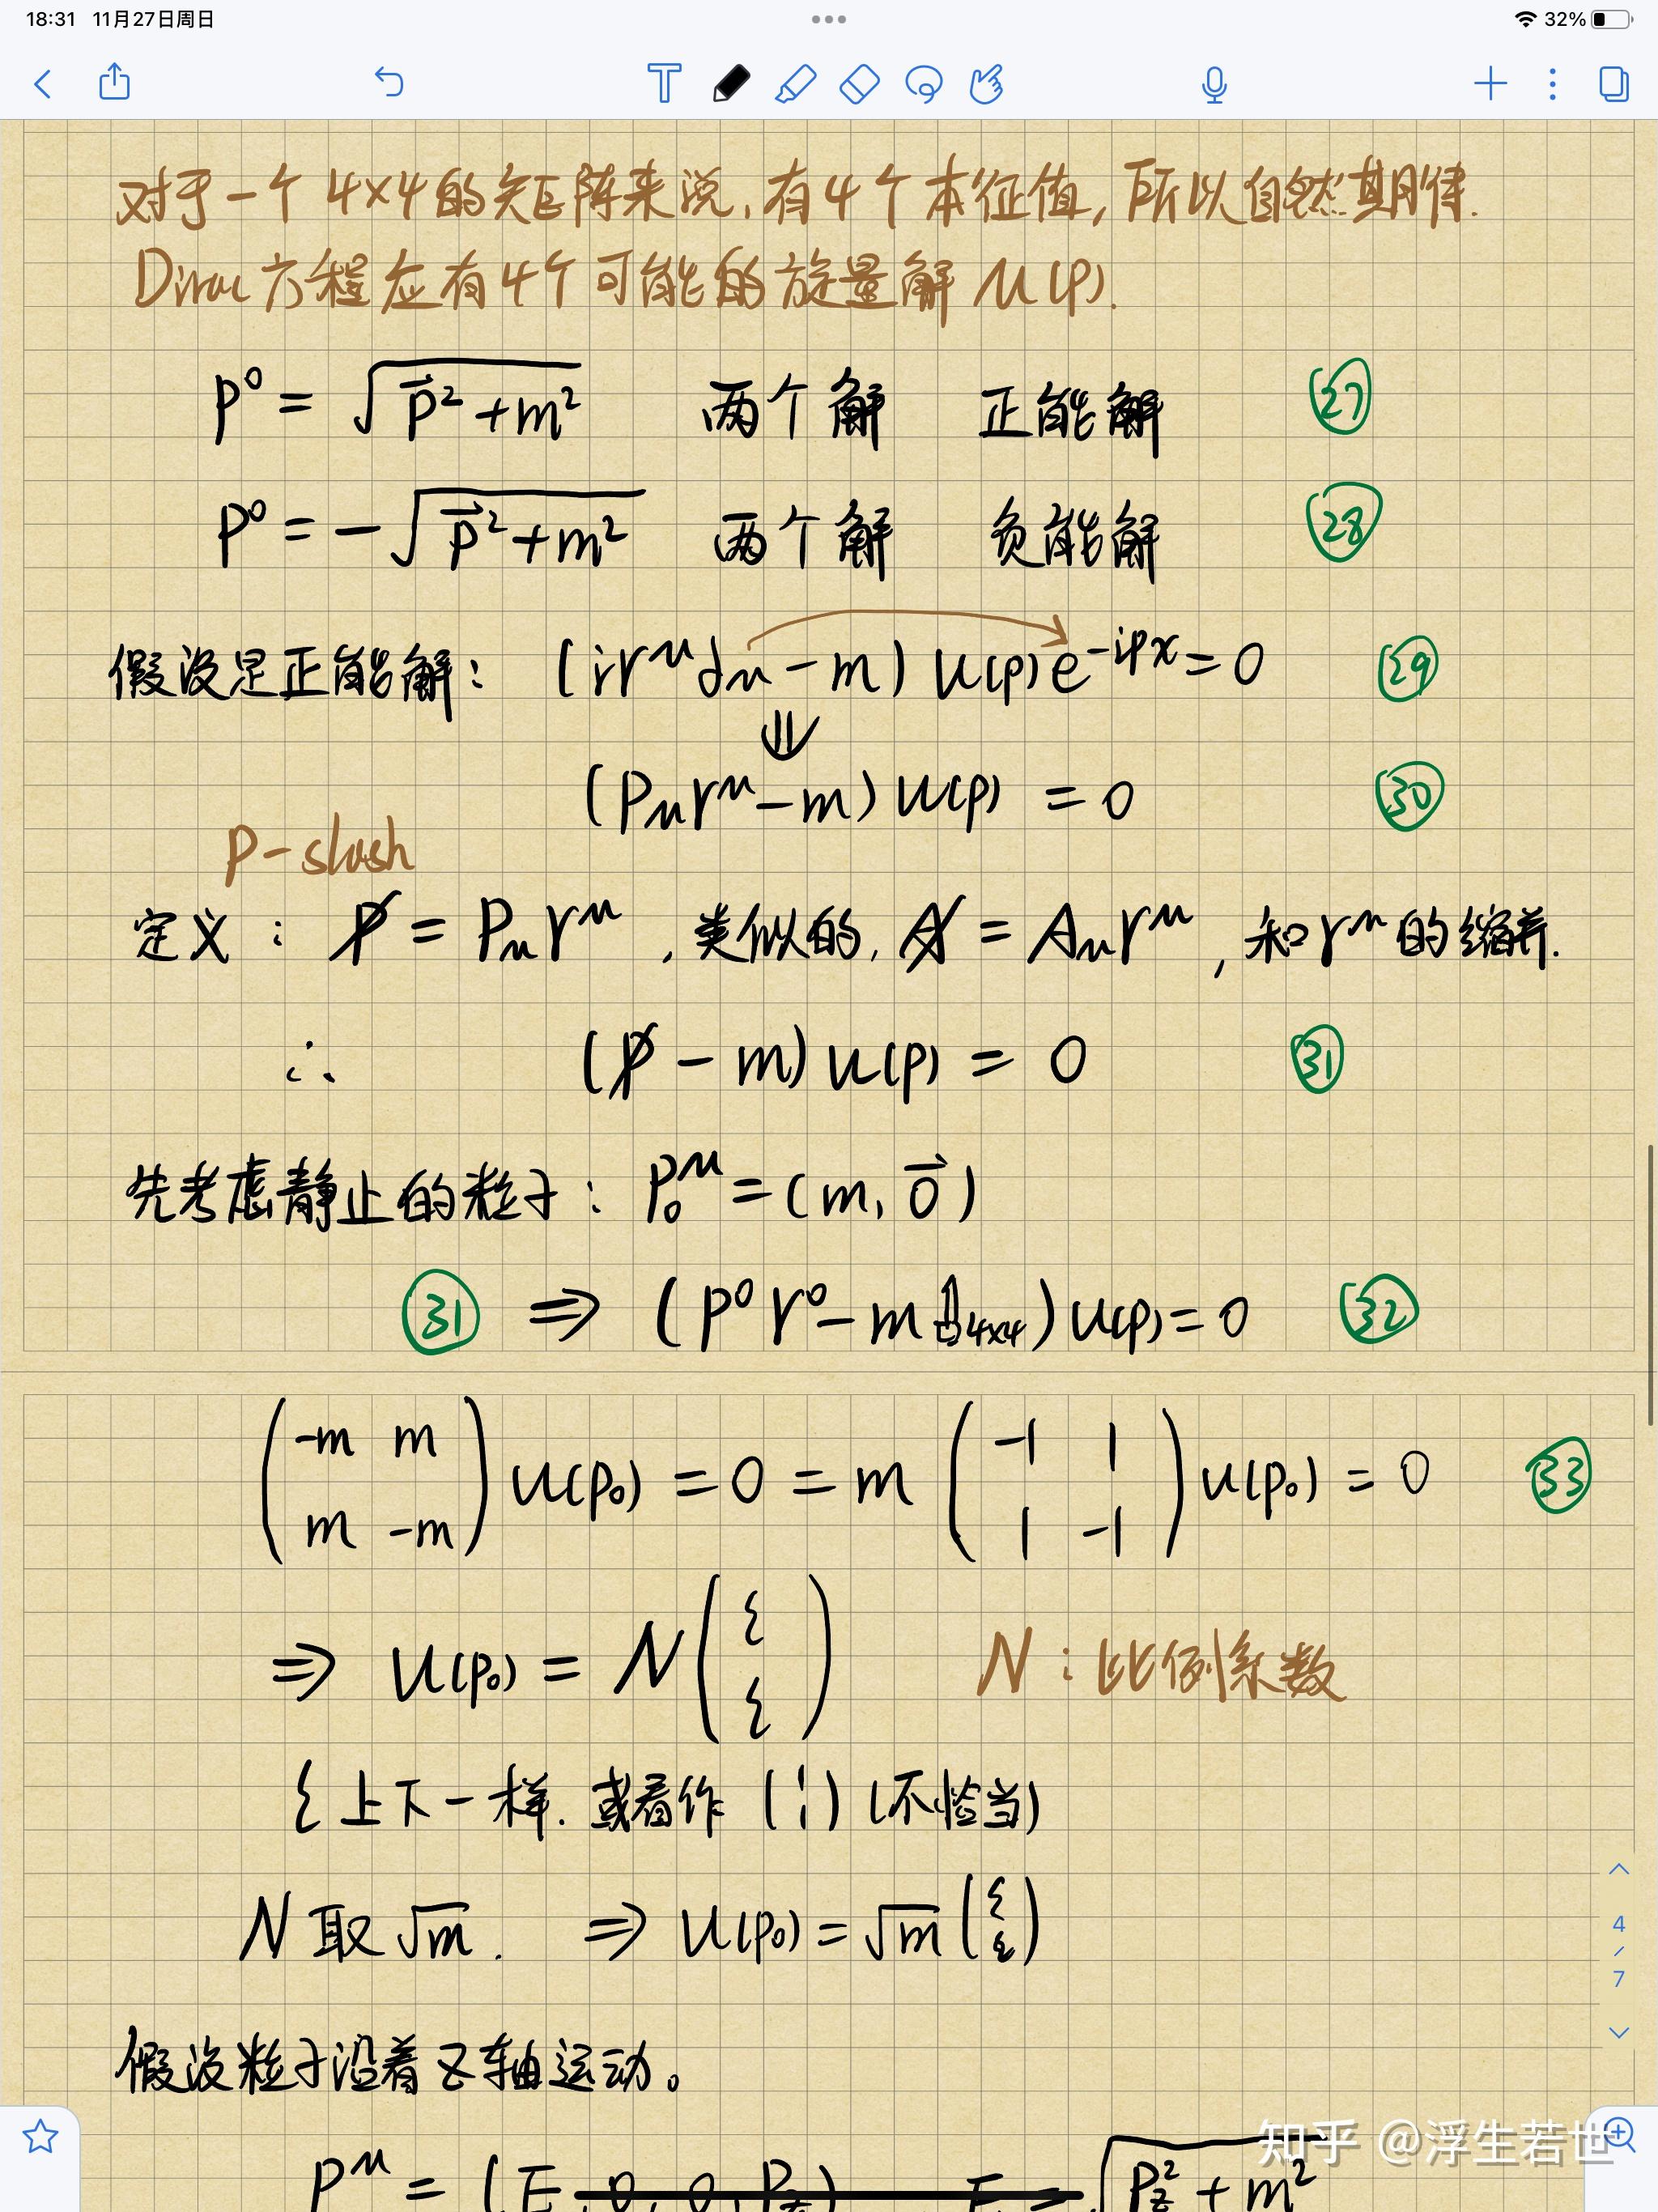 18:31 11月27日周日
32%
对于一个 4×4 的矩阵来说, 有 4 个本征值, 所以自然期待.
Dirac 方程应有 4 个可能的旋量解 u(p).
p⁰ = √(p⃗² + m²) 两个解 正能解 ㉗
p⁰ = -√(p⃗² + m²) 两个解 负能解 ㉘
假设是正能解: (iγ^μ ∂_μ - m) u(p) e^{-ipx} = 0 ㉙
⇓
(p_μ γ^μ - m) u(p) = 0 ㉚
p-slash
定义: p̸ = p_μ γ^μ, 类似的, A̸ = A_μ γ^μ, 和 γ^μ 的缩并.
∴ (p̸ - m) u(p) = 0 ㉛
先考虑静止的粒子: p₀^μ = (m, 0⃗)
㉛ ⇒ (p⁰ γ⁰ - m 𝟙_{4×4}) u(p) = 0 ㉜
( -m m ; m -m ) u(p₀) = 0 = m ( -1 1 ; 1 -1 ) u(p₀) = 0 ㉝
⇒ u(p₀) = N ( ξ ; ξ ) N: 比例系数
ξ 上下一样. 或看作 ( 1 ; 1 ) (不恰当)
N 取 √m. ⇒ u(p₀) = √m ( ξ ; ξ )
4
/
7
假设粒子沿着 z 轴运动。
p^μ = (E, 0, 0, p_z) E = √(p_z² + m²)
知乎 @浮生若世